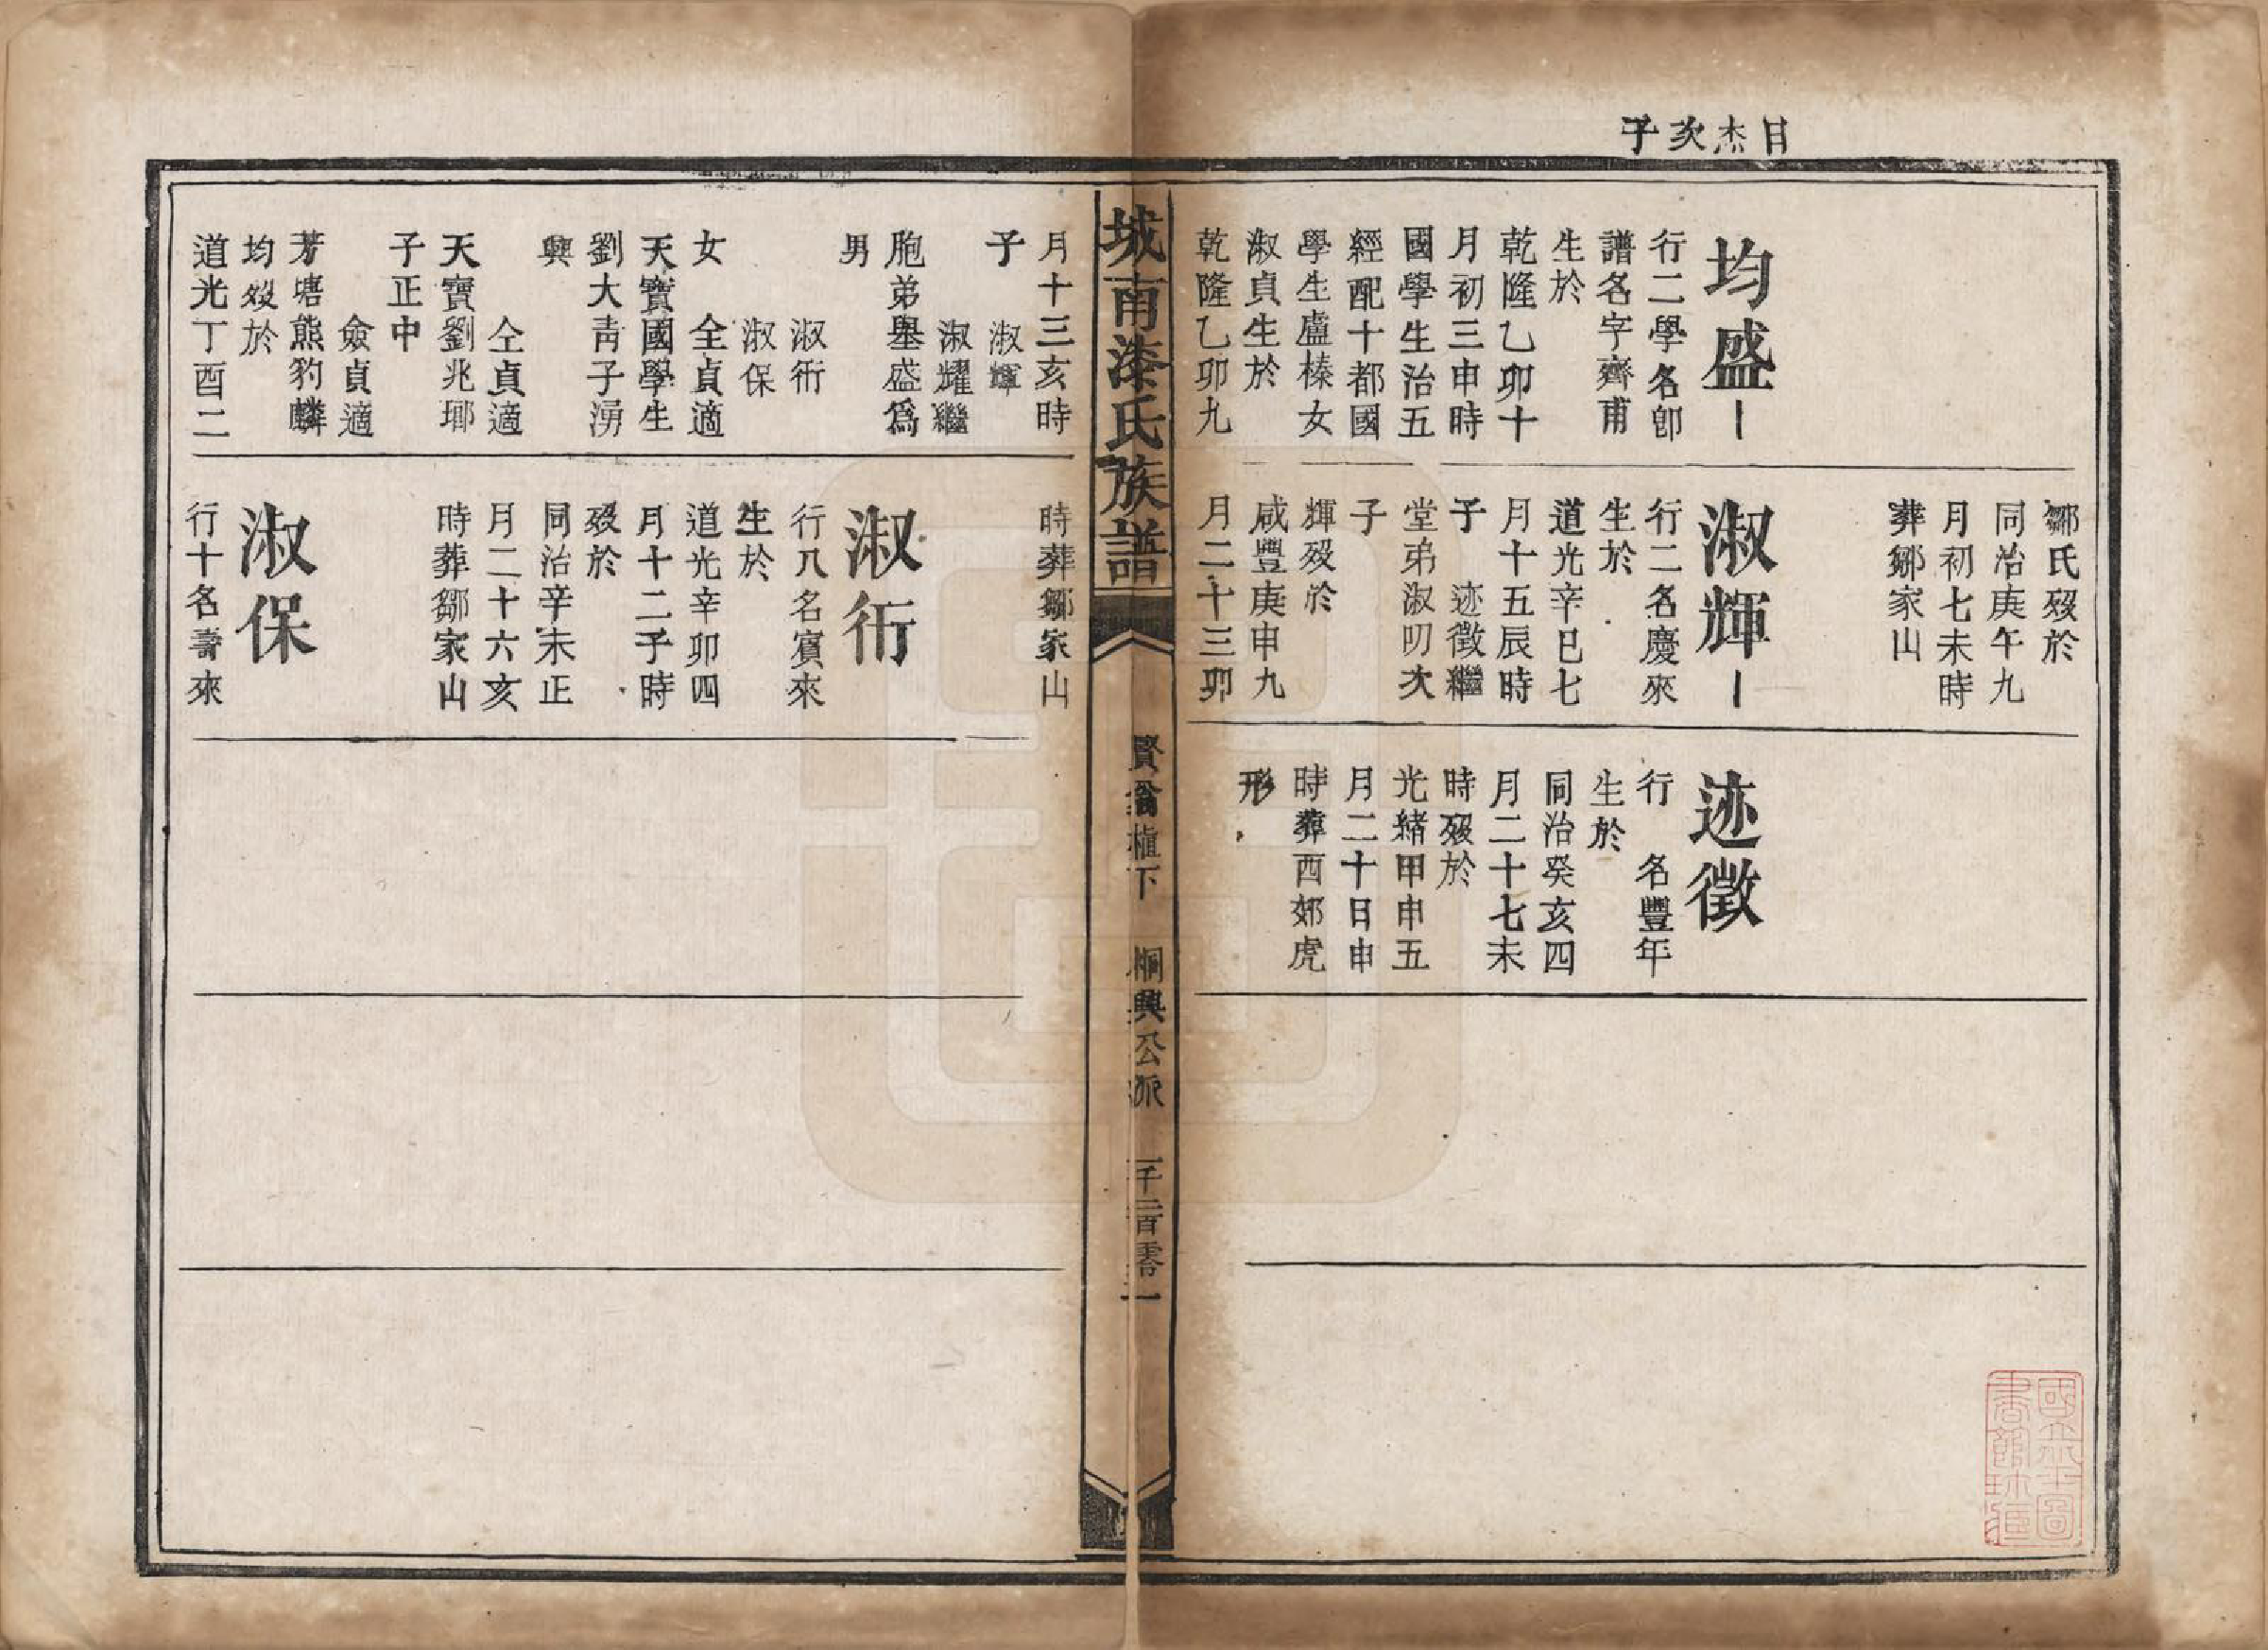 日杰次子
均盛
行二學名卽
譜名字齊甫
生於
乾隆乙卯十
月初三申時
國學生治五
經配十都國
學生盧榛女
淑貞生於
乾隆乙卯九
鄒氏歿於
同治庚午九
月初七未時
葬鄒家山
淑輝
行二名慶來
生於
道光辛巳七
月十五辰時
子 迹徵繼
堂弟淑叨次
子
輝歿於
咸豐庚申九
月二十三卯
迹徵
行 名豐年
生於
同治癸亥四
月二十七未
時歿於
光緒甲申五
月二十日申
時葬西郊虎
形
城南漆氏族譜
賢翕植下 桐興公派 一千三百零二
月十三亥時
子 淑輝
淑耀繼
胞弟舉盛為
男
淑衎
淑保
女 仝貞適
天寶國學生
劉大靑子湧
興
仝貞適
天寶劉兆瑘
子正中
僉貞適
芳塘熊豹麟
均歿於
道光丁酉二
時葬鄒家山
淑衎
行八名賓來
生於
道光辛卯四
月十二子時
歿於
同治辛未正
月二十六亥
時葬鄒家山
淑保
行十名壽來
國立北平圖書館珍藏